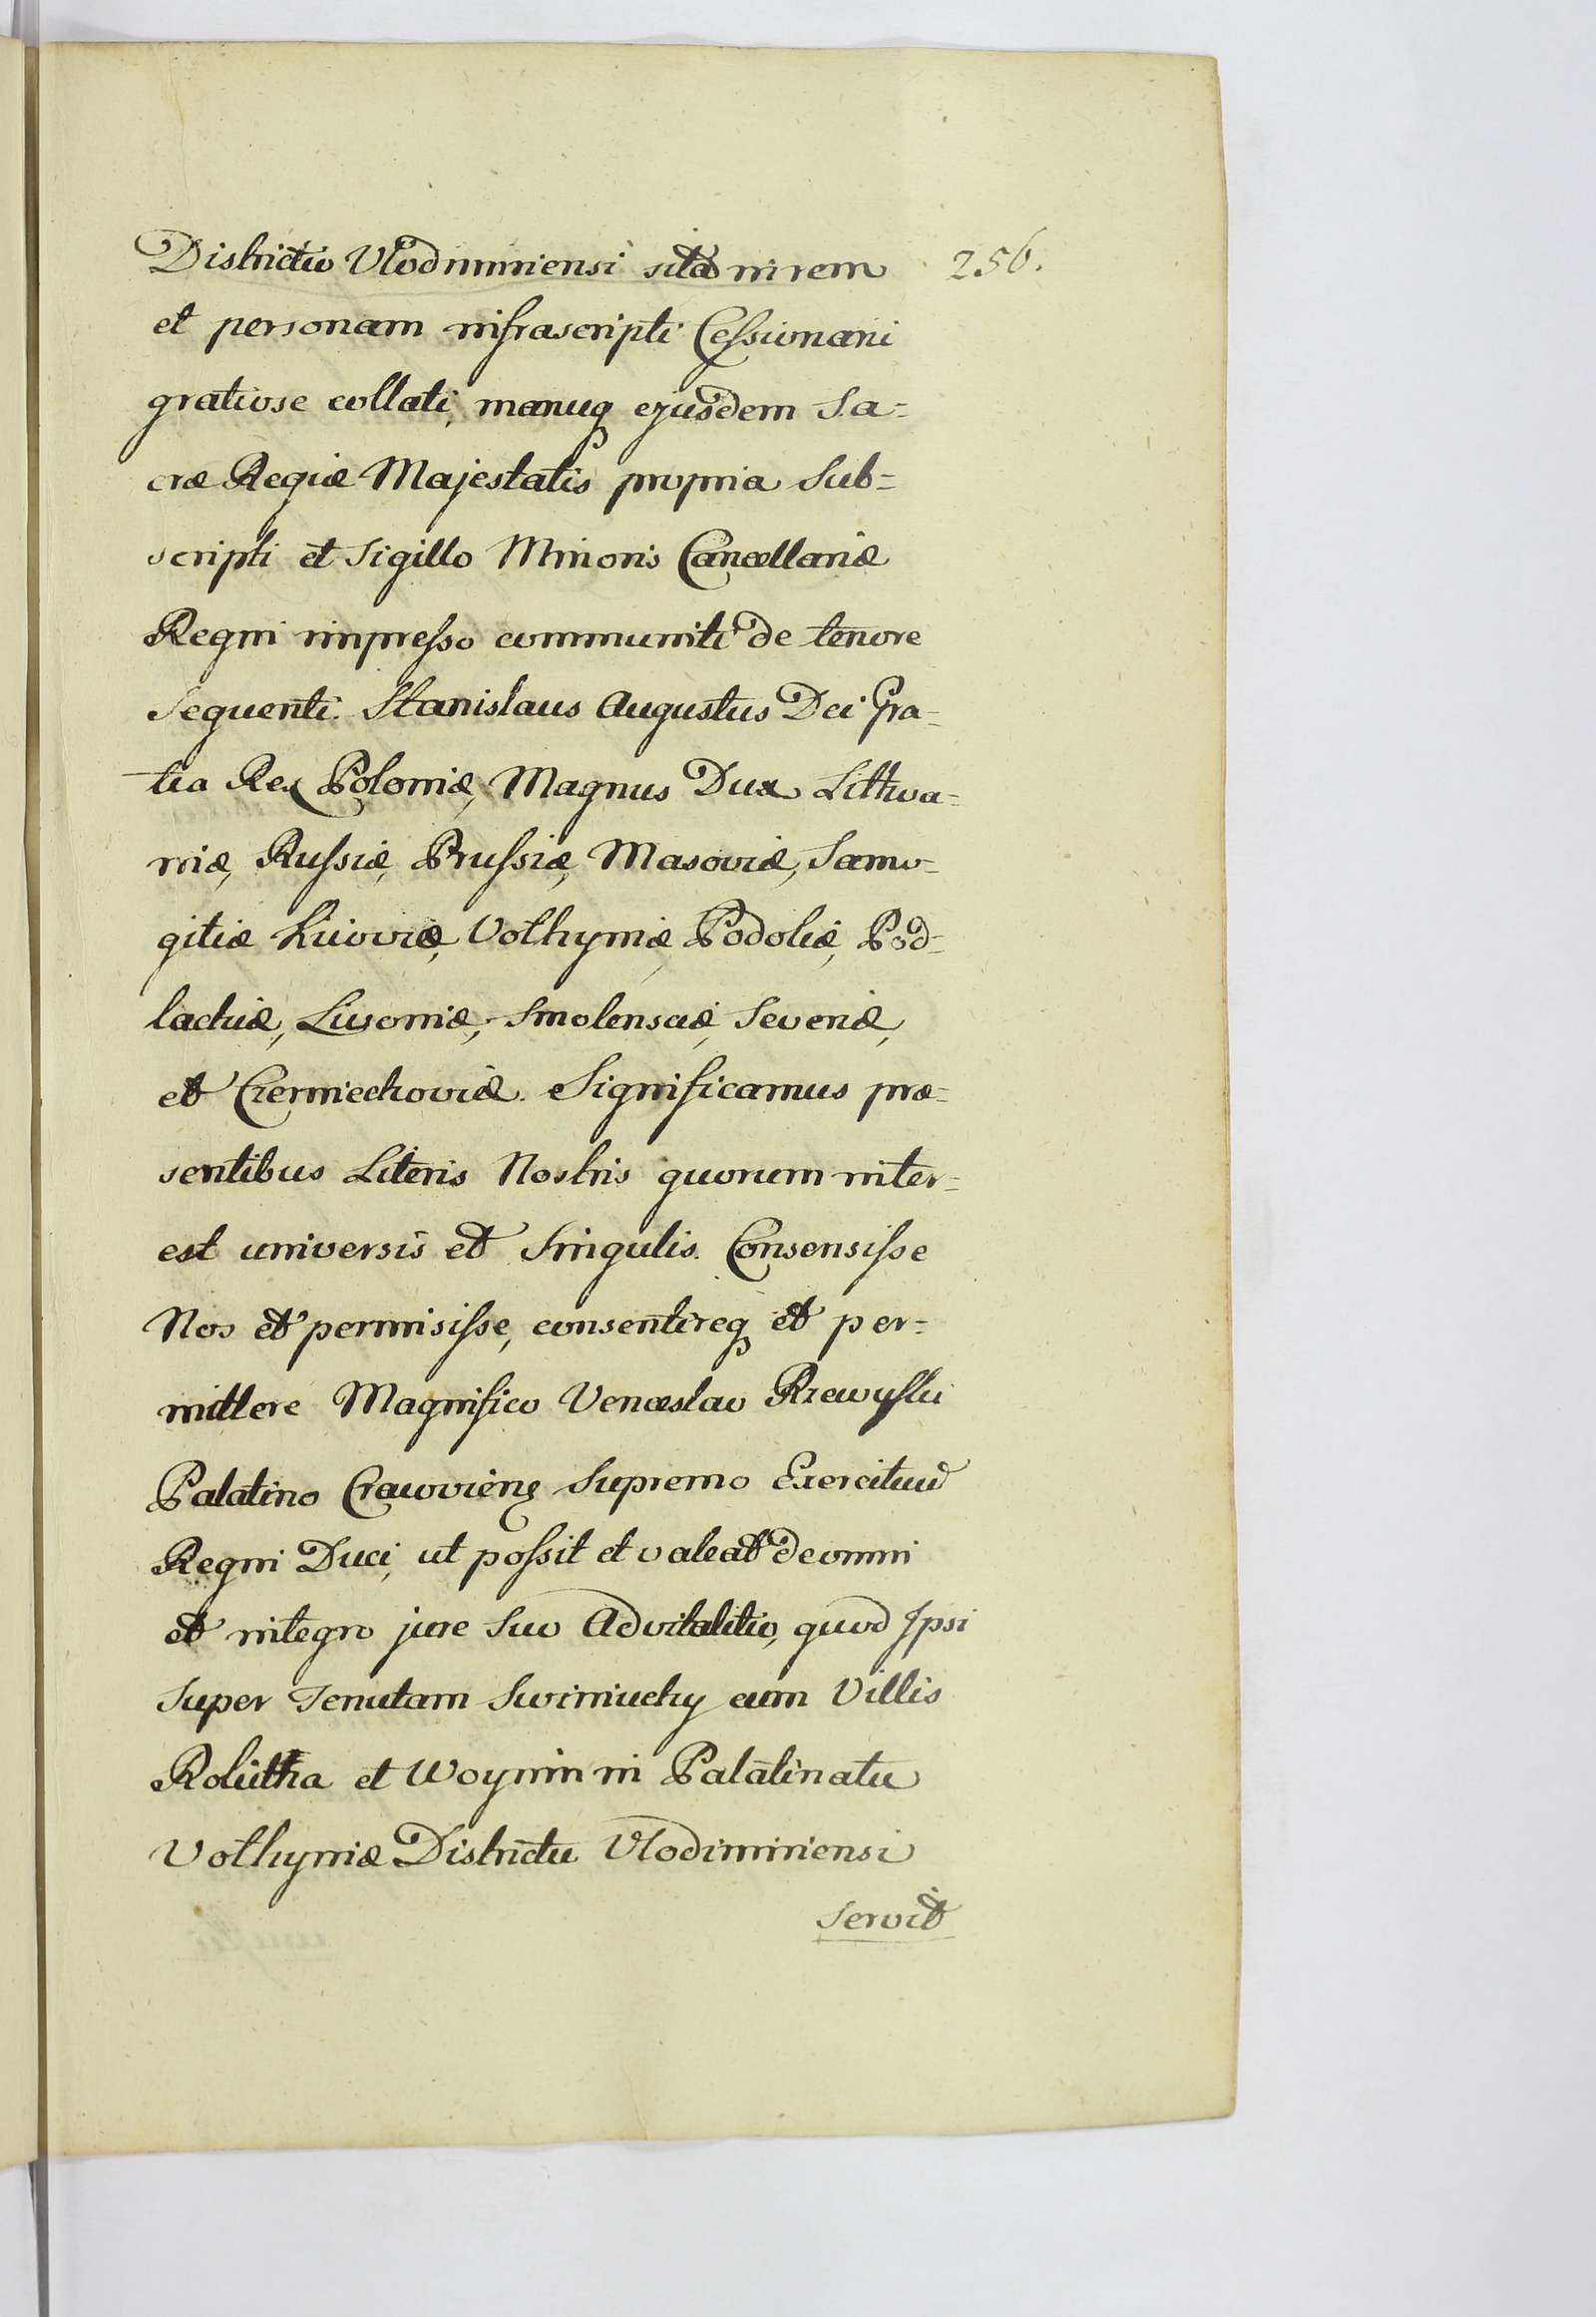 Districtu Vlodimiriensi sita in rem 256.
et personam infrascripti Cessionarii
gratiose collati, manuq ejusdem Sa=
cræ Regiæ Majestatis propria Sub=
scripti et Sigillo Minoris Cancellariæ
Regni impresso communiti de tenore
Sequenti. Stanislaus Augustus Dei Gra=
tia Rex Poloniæ, Magnus Dux Lithua=
niæ, Russiæ, Prussiæ, Masoviæ, Samo=
gitiæ Kiioviæ, Volhyniæ, Podoliæ, Pod=
lachiæ, Livoniæ, Smolensciæ, Severiæ,
et Czerniechoviæ. Significamus præ=
sentibus Literis Nostris quorum inter=
est universis et Singulis. Consensisse
Nos et permisisse, consentireq et per=
mittere Magnifico Venceslao Rzewuski
Palatino Cracovieng Supremo Exercituũ
Regni Duci, ut possit et valeat de omni
et integro jure Suo Advitalitio, quod Ipsi
Super Tenutam Swiniuchy cum Villis
Roluthα et Woynin in Palatinatu
Volhyniæ Districtu Vlodimiriensi
Servit